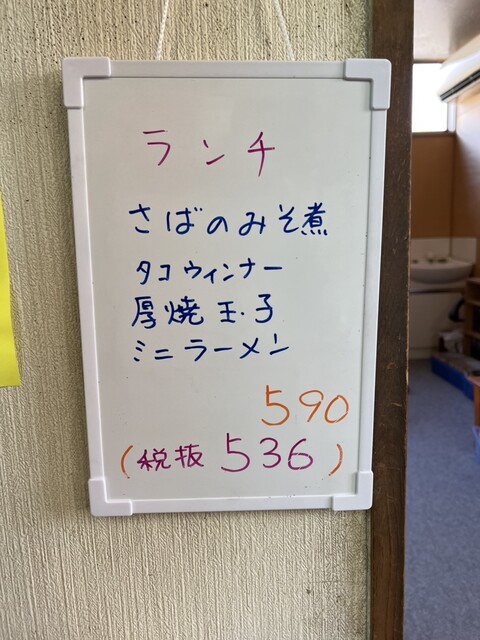 ランチ
さばのみそ煮
タコウィンナー
厚焼玉子
ミニラーメン
590
(税抜 536)